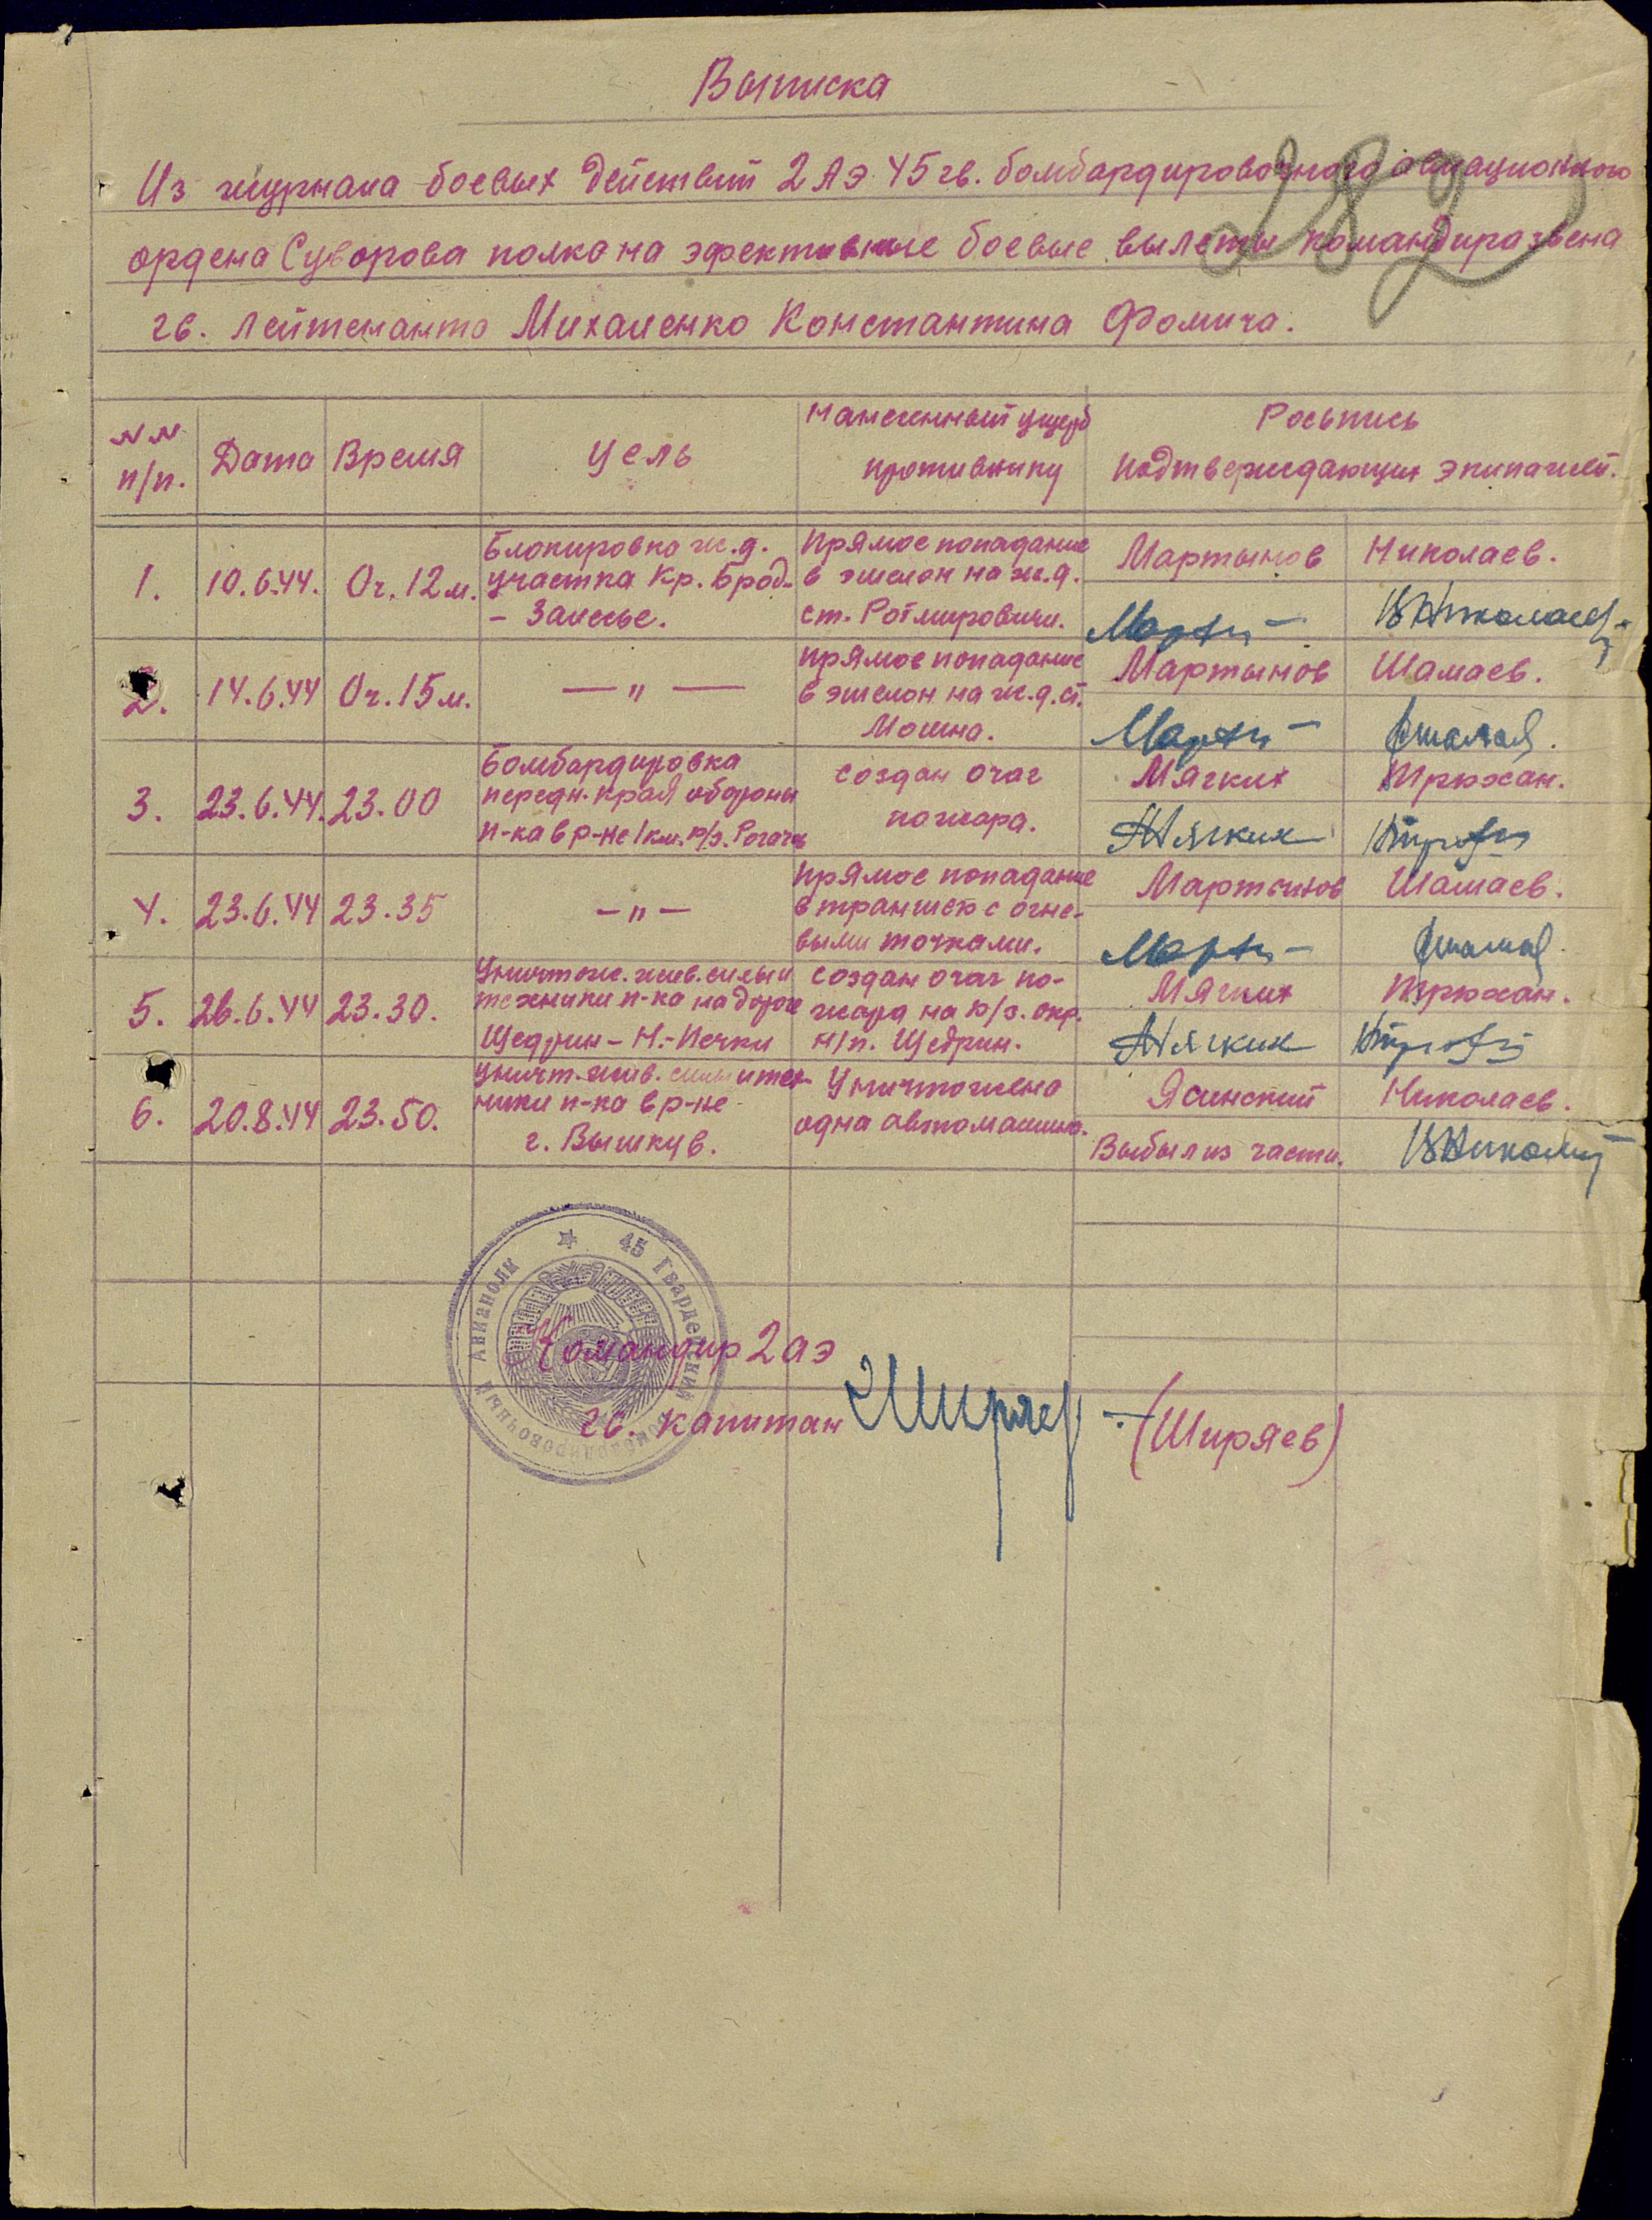 Выписка
282
Из журнала боевых действий 2 АЭ 45 гв. бомбардировочного авиационного
ордена Суворова полка на эфективные боевые вылеты командира звена
гв. лейтенанта Михаленко Константина Фомича.
NN п/п. Дата Время Цель Нанесенный ущерб противнику Росьпись подтверждающих экипажей.
1. 10.6.44. 0ч.12м. Блокировка ж.д. Прямое попадание Мартынов Николаев.
участка Кр. Брод- в эшелон на ж.д.
- Залесье. ст. Ротмировичи. ВНиколаев
2. 14.6.44 0ч.15м. — " — Прямое попадание Мартынов Шамаев.
в эшелон на ж.д.ст.
Мошна.
3. 23.6.44. 23.00 Бомбардировка создан очаг Мягких Трюхан.
передн. края обороны пожара.
п-ка в р-не 1 км. ю/з. Рогачев Мягких
4. 23.6.44 23.35 — " — Прямое попадание Мартынов Шамаев.
в траншею с огне-
выми точками.
5. 26.6.44 23.30. Уничтож. жив. силы и создан очаг по- Мягких Трюхан.
техники п-ка на дороге жара на ю/з. окр.
Щедрин - Н.-Печки н/п. Щедрин. Мягких
6. 20.8.44 23.50. Уничт. жив. силы и тех- Уничтожена Ясинский Николаев.
ники п-ка в р-не одна автомашина.
г. Вышкув. Выбыл из части. ВНиколаев
45 Гвардейский Бомбардировочный Авиаполк
Командир 2 аэ
гв. капитан Ширяев (Ширяев)